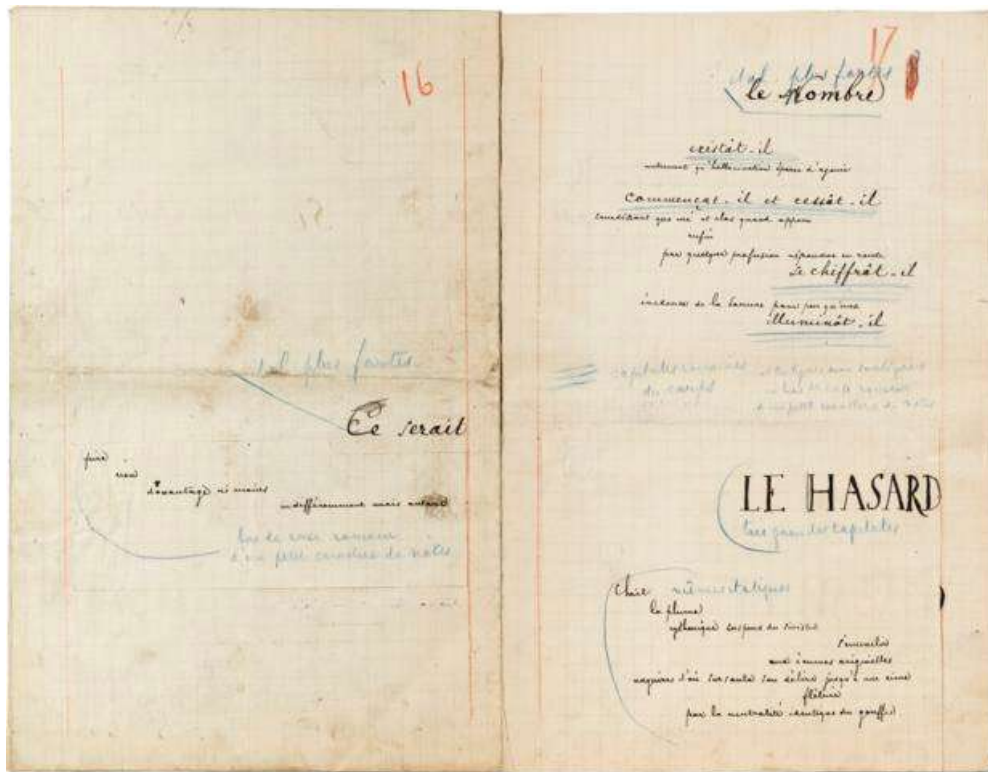 16
ital plus fortes
Ce serait
pire
non
davantage ni moins
indifféremment mais autant
bas de casse romain
d'un petit caractère de notes
17
ital plus fortes
le nombre
existât-il
autrement qu'hallucination éparse d'agonie
commençât-il et cessât-il
sourdant que nié et clos quand apparu
enfin
par quelque profusion répandue en rareté
se chiffrât-il
évidence de la somme pour peu qu'une
illuminât-il
capitales romaines
du corps
bas de casse romain
d'un petit caractère de notes
LE HASARD
très grandes capitales
Choit mêmes italiques
la plume
rythmique suspens du sinistre
s'ensevelir
aux écumes originelles
naguères d'où sursauta son délire jusqu'à une cime
flétrie
par la neutralité identique du gouffre